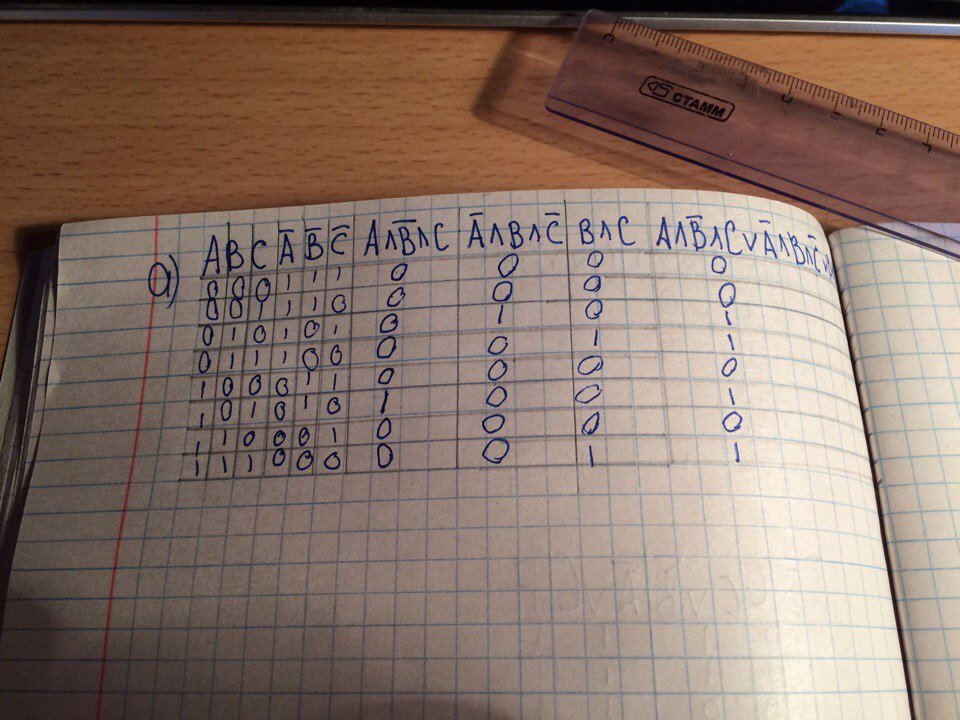 0 1 2 3 4 5 6 7
СТАММ
а) A B C Ā B̄ C̄ A∧B̄∧C Ā∧B∧C̄ B∧C A∧B̄∧C∨Ā∧B∧C̄∨
0 0 0 1 1 1 0 0 0 0
0 0 1 1 1 0 0 0 0 0
0 1 0 1 0 1 0 1 0 1
0 1 1 1 0 0 0 0 1 1
1 0 0 0 1 1 0 0 0 0
1 0 1 0 1 0 1 0 0 1
1 1 0 0 0 1 0 0 0 0
1 1 1 0 0 0 0 0 1 1